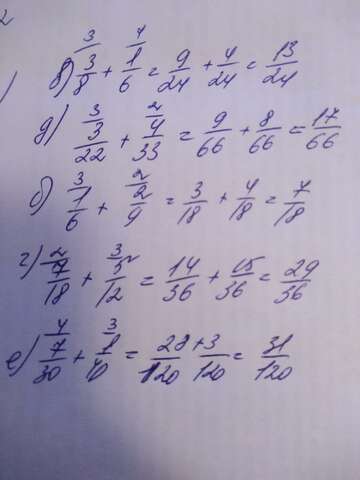 в) ³3/8 + ⁴1/6 = 9/24 + 4/24 = 13/24
д) ³3/22 + ²4/33 = 9/66 + 8/66 = 17/66
б) ³1/6 + ²2/9 = 3/18 + 4/18 = 7/18
г) ²7/18 + ³5/12 = 14/36 + 15/36 = 29/36
е) ⁴7/30 + ³1/40 = 28/120 + 3/120 = 31/120